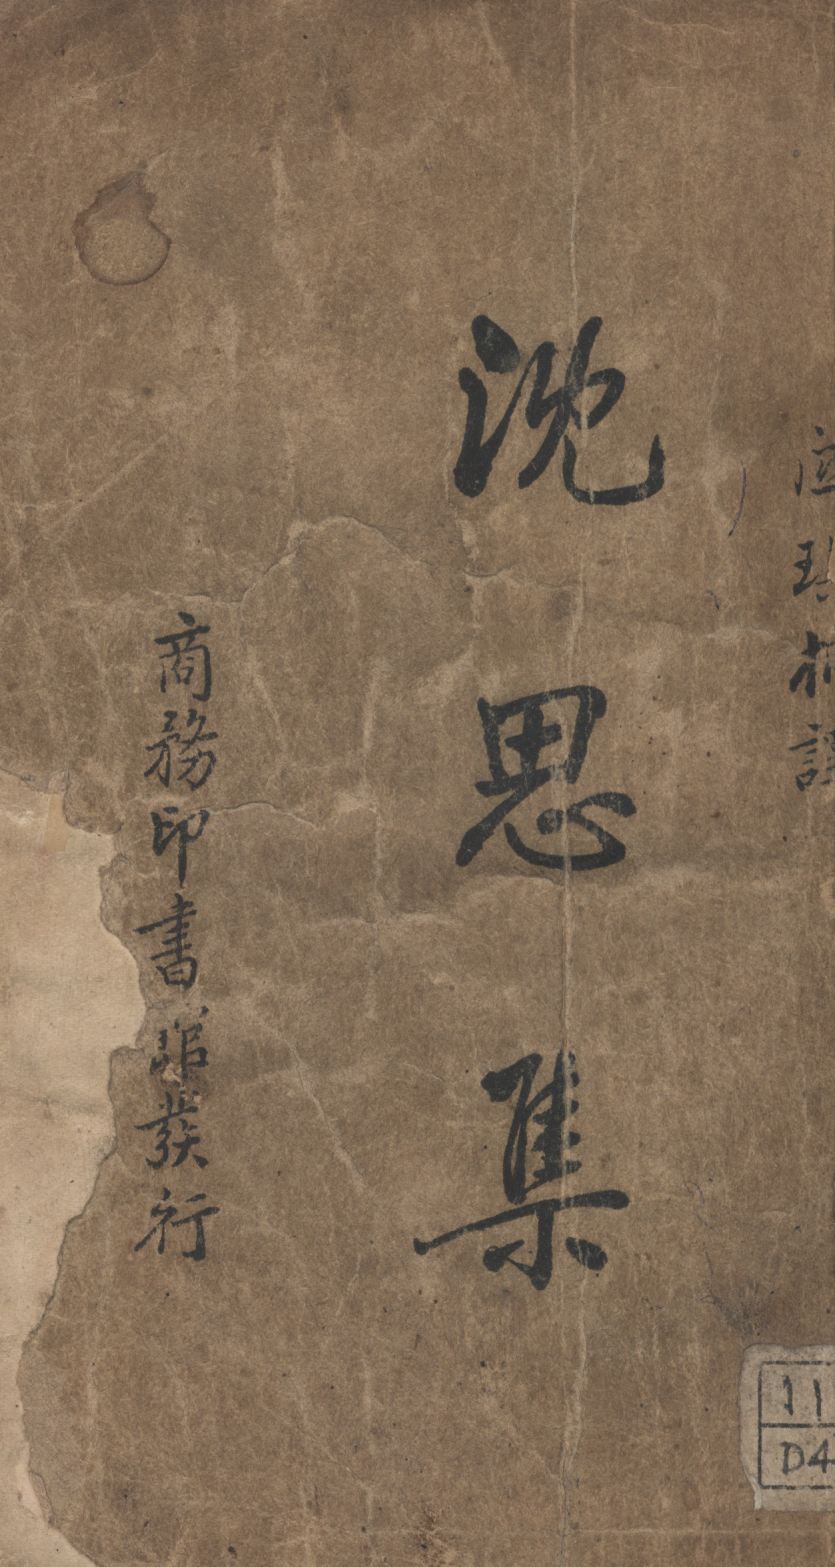 譯
沈思集
商務印書館發行
11
D4